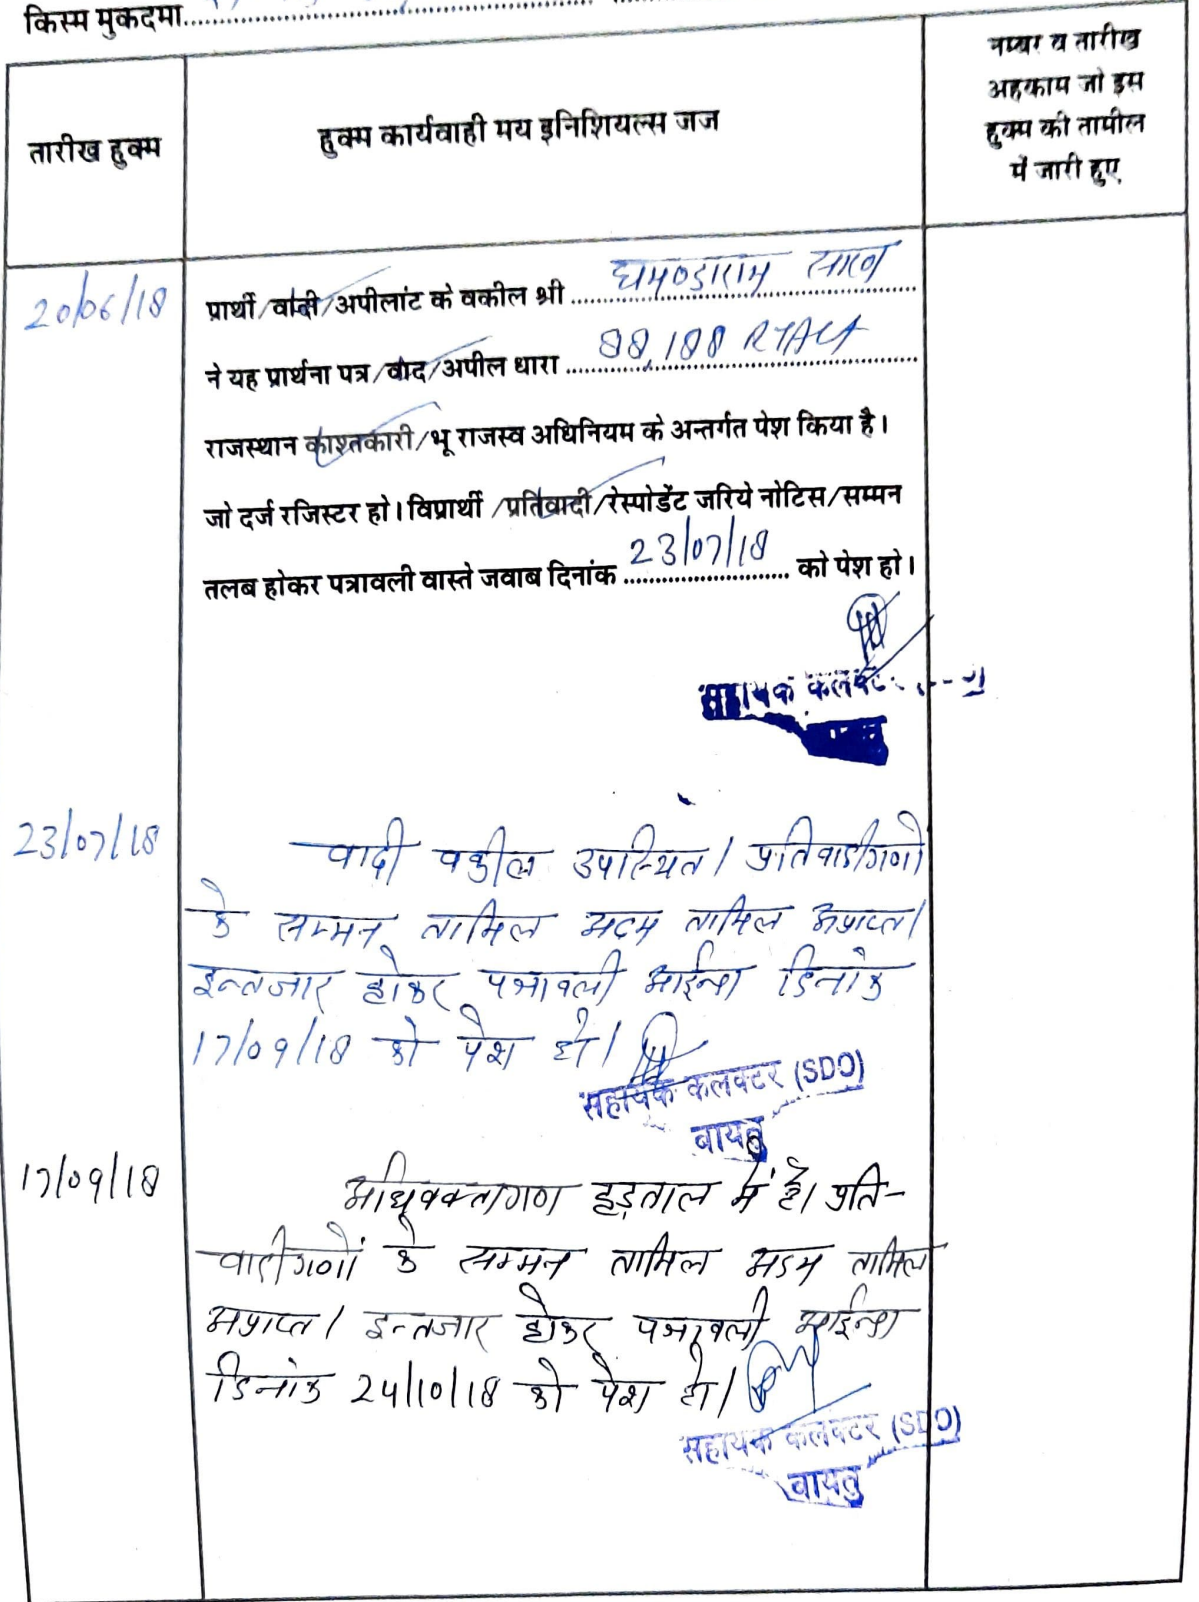 किस्म मुकदमा
नम्बर व तारीख
अहकाम जो इस
हुक्म की तामील
में जारी हुए
तारीख हुक्म
हुक्म कार्यवाही मय इनिशियल्स जज
20/06/18
प्रार्थी/वादी/अपीलांट के वकील श्री घमण्डाराम सारण
ने यह प्रार्थना पत्र/वाद/अपील धारा 88,188
राजस्थान काश्तकारी/भू राजस्व अधिनियम के अन्तर्गत पेश किया है।
जो दर्ज रजिस्टर हो। विप्रार्थी/प्रतिवादी/रेस्पोडेंट जरिये नोटिस/सम्मन
तलब होकर पत्रावली वास्ते जवाब दिनांक 23/07/18 को पेश हो।
सहायक कलक्टर
23/07/18
वादी वकील उपस्थित। प्रतिवादीगणो
के सम्मन तामिल अदम तामिल अप्राप्त।
इन्तजार होकर पत्रावली आईन्दा दिनांक
17/09/18 को पेश हो।
सहायक कलक्टर (SDO)
बायतु
17/09/18
अधिवक्तागण हड़ताल में है। प्रति-
वादीगणों के सम्मन तामिल अदम तामिल
अप्राप्त। इन्तजार होकर पत्रावली आईन्दा
दिनांक 24/10/18 को पेश हो।
सहायक कलक्टर (SDO)
बायतु